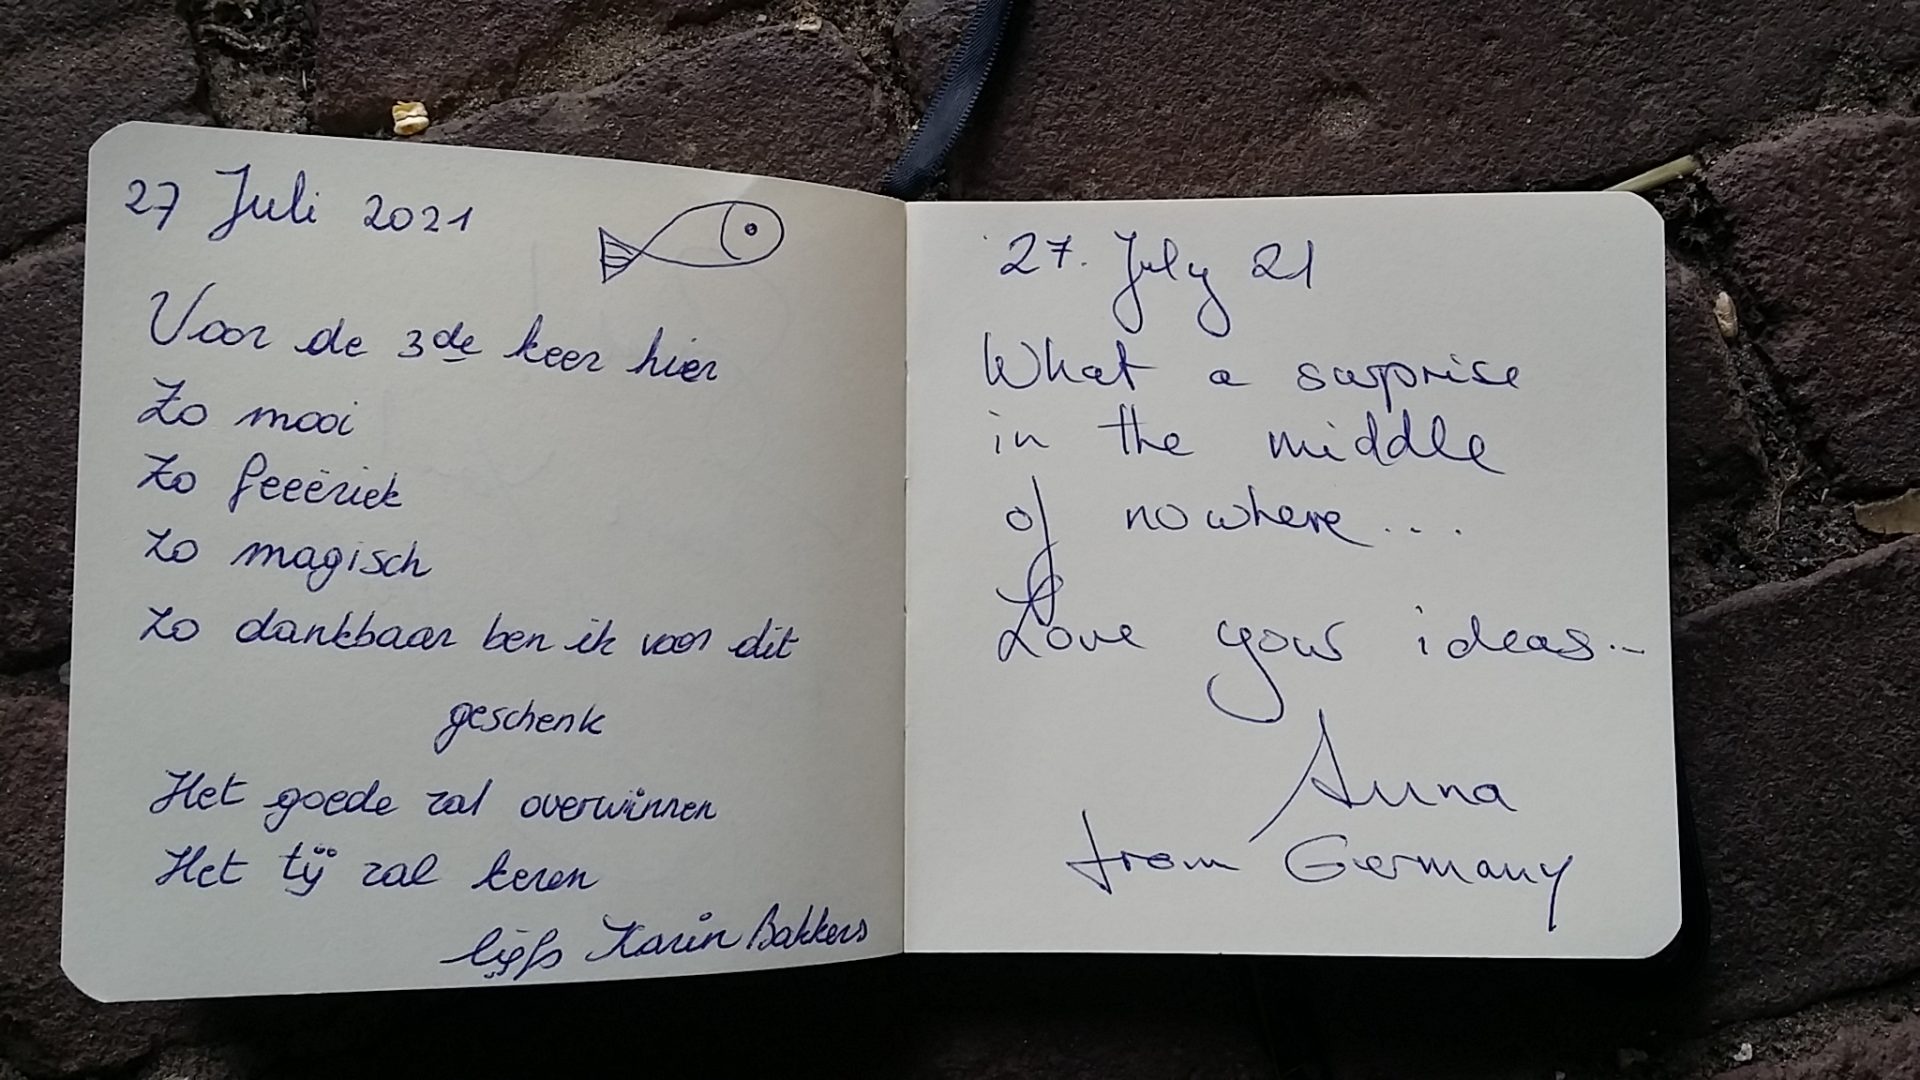 27 Juli 2021
Voor de 3de keer hier
Zo mooi
Zo feeëriek
Zo magisch
Zo dankbaar ben ik voor dit
geschenk
Het goede zal overwinnen
Het tij zal keren
liefs Karin Bakkers
27. July 21
What a surprise
in the middle
of nowhere....
Love your ideas...
Anna
from Germany